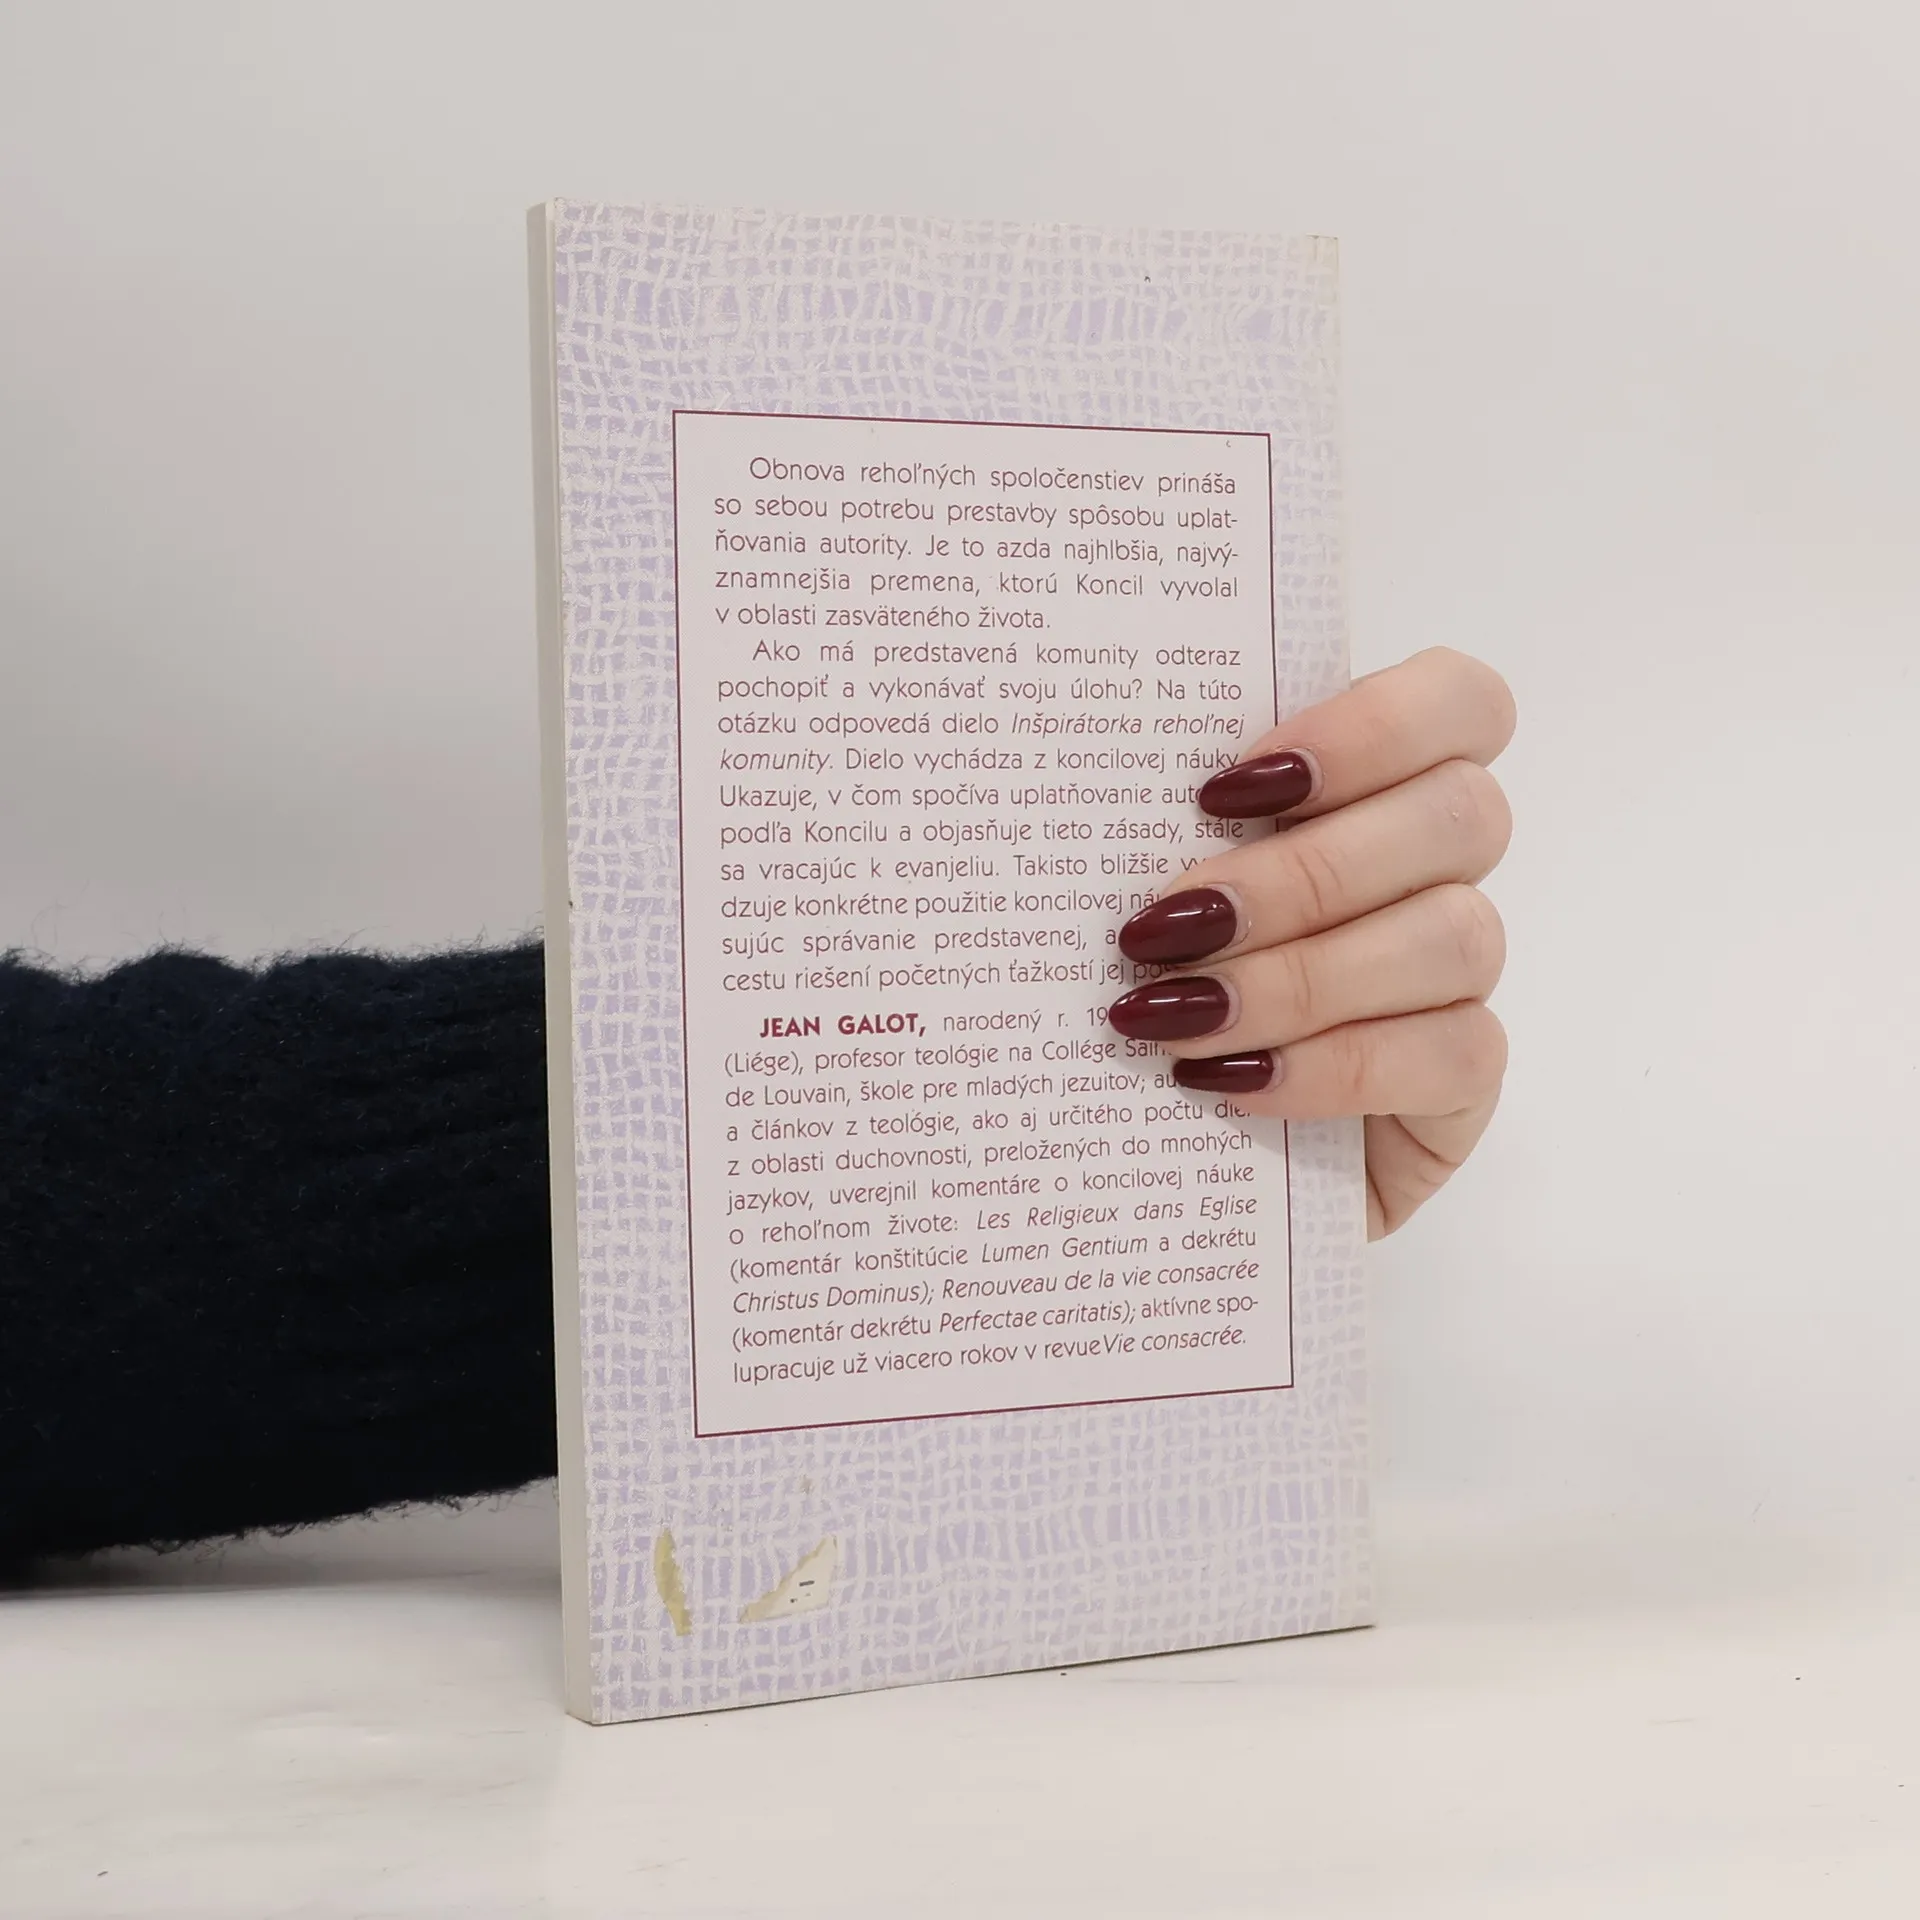 Obnova rehoľných spoločenstiev prináša
so sebou potrebu prestavby spôsobu uplat-
ňovania autority. Je to azda najhlbšia, najvý-
znamnejšia premena, ktorú Koncil vyvolal
v oblasti zasväteného života.
Ako má predstavená komunity odteraz
pochopiť a vykonávať svoju úlohu? Na túto
otázku odpovedá dielo Inšpirátorka rehoľnej
komunity. Dielo vychádza z koncilovej náuky.
Ukazuje, v čom spočíva uplatňovanie
podľa Koncilu a objasňuje tieto zásady, stále
sa vracajúc k evanjeliu. Takisto bližšie
dzuje konkrétne použitie koncilovej
sujúc správanie predstavenej, a
cestu riešení početných ťažkostí jej
JEAN GALOT, narodený r. 19
(Liége), profesor teológie na Collége
de Louvain, škole pre mladých jezuitov;
a článkov z teológie, ako aj určitého počtu diel
z oblasti duchovnosti, preložených do mnohých
jazykov, uverejnil komentáre o koncilovej náuke
o rehoľnom živote: Les Religieux dans Eglise
(komentár konštitúcie Lumen Gentium a dekrétu
Christus Dominus); Renouveau de la vie consacrée
(komentár dekrétu Perfectae caritatis); aktívne spo-
lupracuje už viacero rokov v revue Vie consacrée.